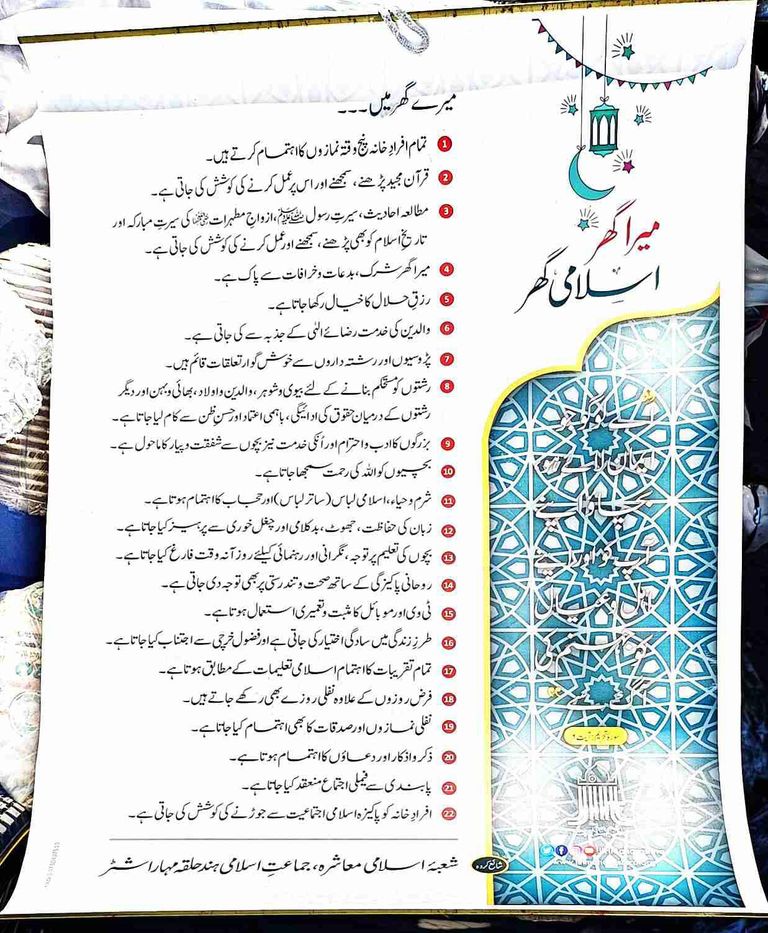 میرا گھر
اسلامی گھر
میرے گھر میں ۔۔۔
1 تمام افرادِ خانہ پنج وقتہ نمازوں کا اہتمام کرتے ہیں۔
2 قرآن مجید پڑھنے، سمجھنے اور اس پر عمل کرنے کی کوشش کی جاتی ہے۔
3 مطالعہ احادیث، سیرتِ رسول ﷺ، ازواجِ مطہرات کی سیرتِ مبارکہ اور
تاریخِ اسلام کو بھی پڑھنے، سمجھنے اور عمل کرنے کی کوشش کی جاتی ہے۔
4 میرا گھر شرک، بدعات و خرافات سے پاک ہے۔
5 رزقِ حلال کا خیال رکھا جاتا ہے۔
6 والدین کی خدمت رضائے الٰہی کے جذبہ سے کی جاتی ہے۔
7 پڑوسیوں اور رشتہ داروں سے خوش گوار تعلقات قائم ہیں۔
8 رشتوں کو مستحکم بنانے کے لئے بیوی و شوہر، والدین و اولاد، بھائی و بہن اور دیگر
رشتوں کے درمیان حقوق کی ادائیگی، باہمی اعتماد اور حسنِ ظن سے کام لیا جاتا ہے۔
9 بزرگوں کا ادب و احترام اور اُنکی خدمت نیز بچوں سے شفقت و پیار کا ماحول ہے۔
10 بچیوں کو اللہ کی رحمت سمجھا جاتا ہے۔
11 شرم و حیاء، اسلامی لباس (ساتر لباس) اور حجاب کا اہتمام ہوتا ہے۔
12 زبان کی حفاظت، جھوٹ، بدکلامی اور چغل خوری سے پرہیز کیا جاتا ہے۔
13 بچوں کی تعلیم پر توجہ، نگرانی اور رہنمائی کیلئے روزآنہ وقت فارغ کیا جاتا ہے۔
14 روحانی پاکیزگی کے ساتھ صحت و تندرستی پر بھی توجہ دی جاتی ہے۔
15 ٹی وی اور موبائل کا مثبت و تعمیری استعمال ہوتا ہے۔
16 طرزِ زندگی میں سادگی اختیار کی جاتی ہے اور فضول خرچی سے اجتناب کیا جاتا ہے۔
17 تمام تقریبات کا اہتمام اسلامی تعلیمات کے مطابق ہوتا ہے۔
18 فرض روزوں کے علاوہ نفلی روزے بھی رکھے جاتے ہیں۔
19 نفلی نمازوں اور صدقات کا بھی اہتمام کیا جاتا ہے۔
20 ذکر و اذکار اور دعاؤں کا اہتمام ہوتا ہے۔
21 پابندی سے فیملی اجتماع منعقد کیا جاتا ہے۔
22 افرادِ خانہ کو پاکیزہ اسلامی اجتماعیت سے جوڑنے کی کوشش کی جاتی ہے۔
شائع کردہ شعبۂ اسلامی معاشرہ، جماعتِ اسلامی ہند حلقہ مہاراشٹر
اے لوگو جو
ایمان لائے ہو
بچاؤ اپنے
آپ کو اور اپنے
اہل و عیال
کو جہنم کی
آگ سے
سورہ تحریم: آیت ۶